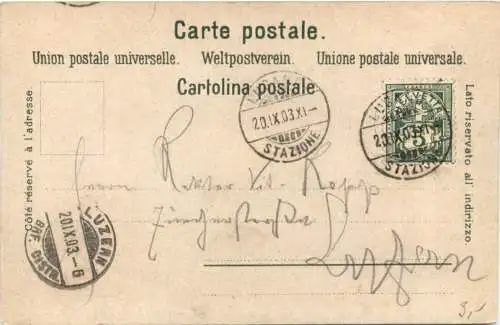 Carte postale.
Union postale universelle. Weltpostverein. Unione postale universale.
Cartolina postale
Côté réservé à l'adresse.
Lato riservato all' indirizzo.
LUGANO
20.IX.03.XI-
STAZIONE
HELVETIA
5
LUGANO
20.IX.03.XI-
STAZIONE
LUZERN
20.IX.03.-6
BRF. DISTR.
Herrn
Zürcherstraße
Luzern
3,-